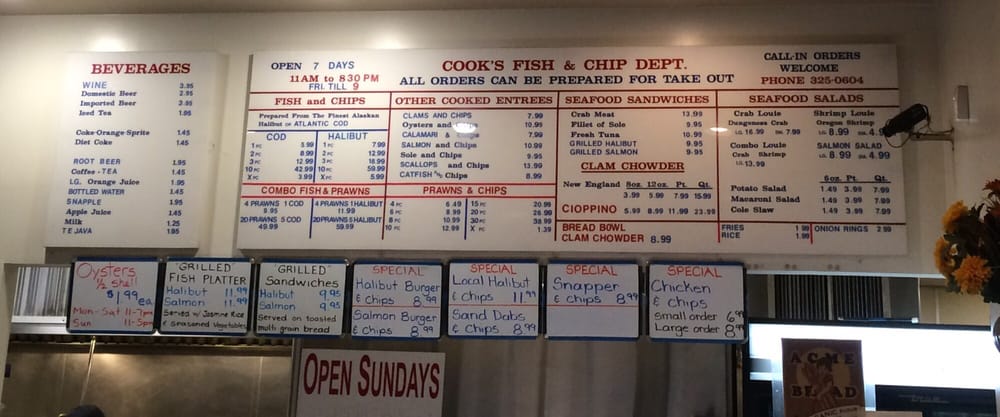 BEVERAGES
WINE 3.95
Domestic Beer 2.95
Imported Beer 3.95
Iced Tea 1.95
Coke-Orange-Sprite 1.45
Diet Coke 1.45
ROOT BEER 1.95
Coffee-TEA 1.45
LG. Orange Juice 1.95
BOTTLED WATER 1.45
SNAPPLE 1.95
Apple Juice 1.45
Milk 1.25
TEJAVA 1.95
OPEN 7 DAYS
11AM to 830 PM
FRI. TILL 9
COOK'S FISH & CHIP DEPT.
ALL ORDERS CAN BE PREPARED FOR TAKE OUT
CALL-IN ORDERS
WELCOME
PHONE 325-0604
FISH and CHIPS
Prepared From The Finest Alaskan
Halibut or ATLANTIC COD
COD HALIBUT
1 PC 5.99 1 PC 7.99
2 PC 8.99 2 PC 12.99
3 PC 12.99 3 PC 18.99
10 PC 42.99 10 PC 59.99
X PC 3.99 X PC 5.99
COMBO FISH & PRAWNS
4 PRAWNS 1 COD 9.95
4 PRAWNS 1 HALIBUT 11.99
20 PRAWNS 5 COD 49.99
20 PRAWNS 5 HALIBUT 59.99
OTHER COOKED ENTREES
CLAMS AND CHIPS 7.99
Oysters and 10.99
CALAMARI & Chips 7.99
SALMON and Chips 10.99
Sole and Chips 9.95
SCALLOPS and Chips 13.99
CATFISH and Chips 8.99
PRAWNS & CHIPS
4 PC 6.49 15 PC 20.99
6 PC 8.99 20 PC 26.99
8 PC 10.99 30 PC 38.99
10 PC 12.99 X PC 1.39
SEAFOOD SANDWICHES
Crab Meat 13.99
Fillet of Sole 9.95
Fresh Tuna 10.99
GRILLED HALIBUT 9.95
GRILLED SALMON 9.95
CLAM CHOWDER
8oz. 12oz. Pt. Qt.
New England 3.99 5.99 7.99 15.99
CIOPPINO 5.99 8.99 11.99 23.99
BREAD BOWL
CLAM CHOWDER 8.99
SEAFOOD SALADS
Crab Louie
Dungeness Crab
LG. 16.99 SM. 7.99
Combo Louie
Crab Shrimp
LG. 13.99
Shrimp Louie
Oregon Shrimp
LG 8.99 SM. 4.99
SALMON SALAD
LG 8.99 SM. 4.99
6oz. Pt. Qt.
Potato Salad 1.49 3.99 7.99
Macaroni Salad 1.49 3.99 7.99
Cole Slaw 1.49 3.99 7.99
FRIES 1.99
RICE 1.99
ONION RINGS 2.99
Oysters
1/2 shell
$1.99
ea.
Mon-Sat 11-7pm
Sun 11-5pm
"GRILLED"
FISH PLATTER
Halibut 11.99
Salmon 11.99
Served w/ Jasmine Rice
& seasoned Vegetables
"GRILLED"
Sandwiches
Halibut 9.95
Salmon 9.95
Served on toasted
multi grain bread
SPECIAL
Halibut Burger
& chips 8.99
Salmon Burger
& chips 8.99
SPECIAL
Local Halibut
& chips 11.99
Sand Dabs
& chips 8.99
SPECIAL
Snapper
& chips 8.99
SPECIAL
Chicken
& chips
Small order 6.99
Large order 8.99
OPEN SUNDAYS
ACME
BREAD